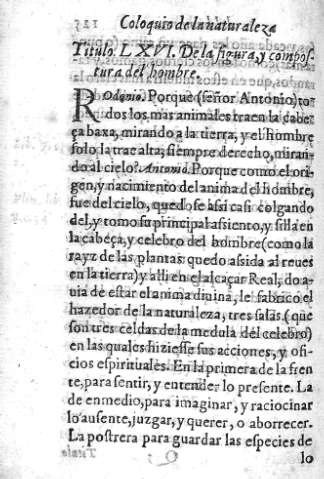 Coloquio de la naturaleza
Titulo. LXVI. De la figura, y compos-
tura del hombre.
Rodonio. Porque (señor Antonio) to-
dos los mas animales traen la cabe-
ça baxa, mirando a la tierra, y el hombre
solo la trae alta, siempre derecho, miran-
do al cielo? Antonio. Porque como el ori-
gen, y nacimiento del anima del hombre,
fue del cielo, quedose assi casi colgando
del, y tomo su principal assiento, y silla en
la cabeça, y celebro del hombre (como la
rayz de las plantas quedo asida al reues
en la tierra) y alli en el alcaçar Real, do a-
uia de estar el anima diuina, le fabrico el
hazedor de la naturaleza, tres salas, (que
son tres celdas de la medula del celebro)
en las quales hiziesse sus acciones, y ofi-
cios espirituales. En la primera de la fren
te, para sentir, y entender lo presente. La
de en medio, para imaginar, y raciocinar
lo ausente, juzgar, y querer, o aborrecer.
La postrera para guardar las especies de
lo